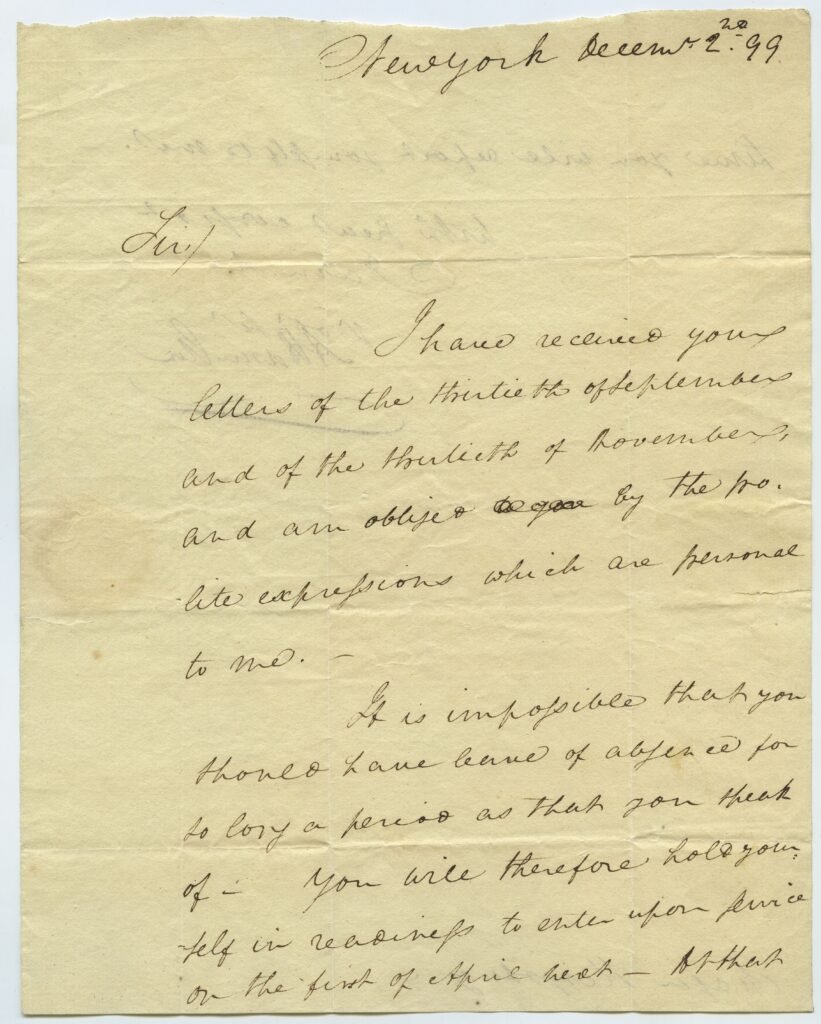 New york Decemr 2nd. 99
Sir/
I have received your
letters of the thirtieth of September
and of the thirtieth of November,
and am obliged to you by the po-
lite expressions which are personal
to me. —
It is impossible that you
should have leave of absence for
so long a period as that you speak
of — You will therefore hold your-
self in readiness to enter upon service
on the first of April next — At that